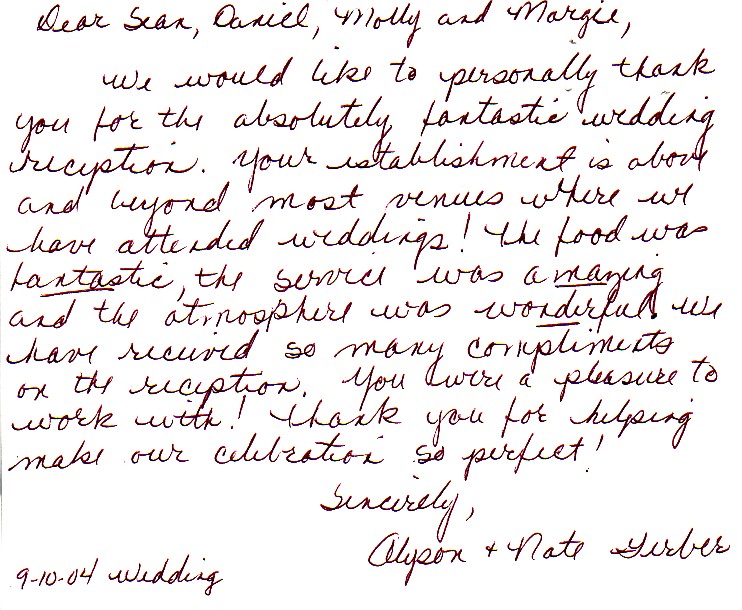 Dear Sean, Daniel, Molly and Margie,
We would like to personally thank
you for the absolutely fantastic wedding
reception. Your establishment is above
and beyond most venues where we
have attended weddings! The food was
fantastic, the service was amazing
and the atmosphere was wonderful. We
have received so many compliments
on the reception. You were a pleasure to
work with! Thank you for helping
make our celebration so perfect!
Sincerely,
Alyson + Nate Gerber
9-10-04 wedding